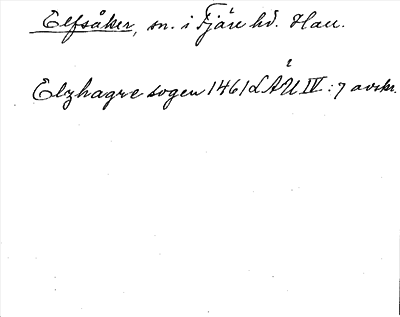 Elfsåker, sn. i Fjäre hd. Hall.
Elzhagre sogen 1461 LÅU IV: 7 avskr.